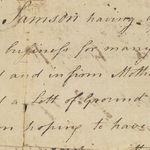 Samson having
business for many
and infirm Moth
a lott of Ground
hoping to have